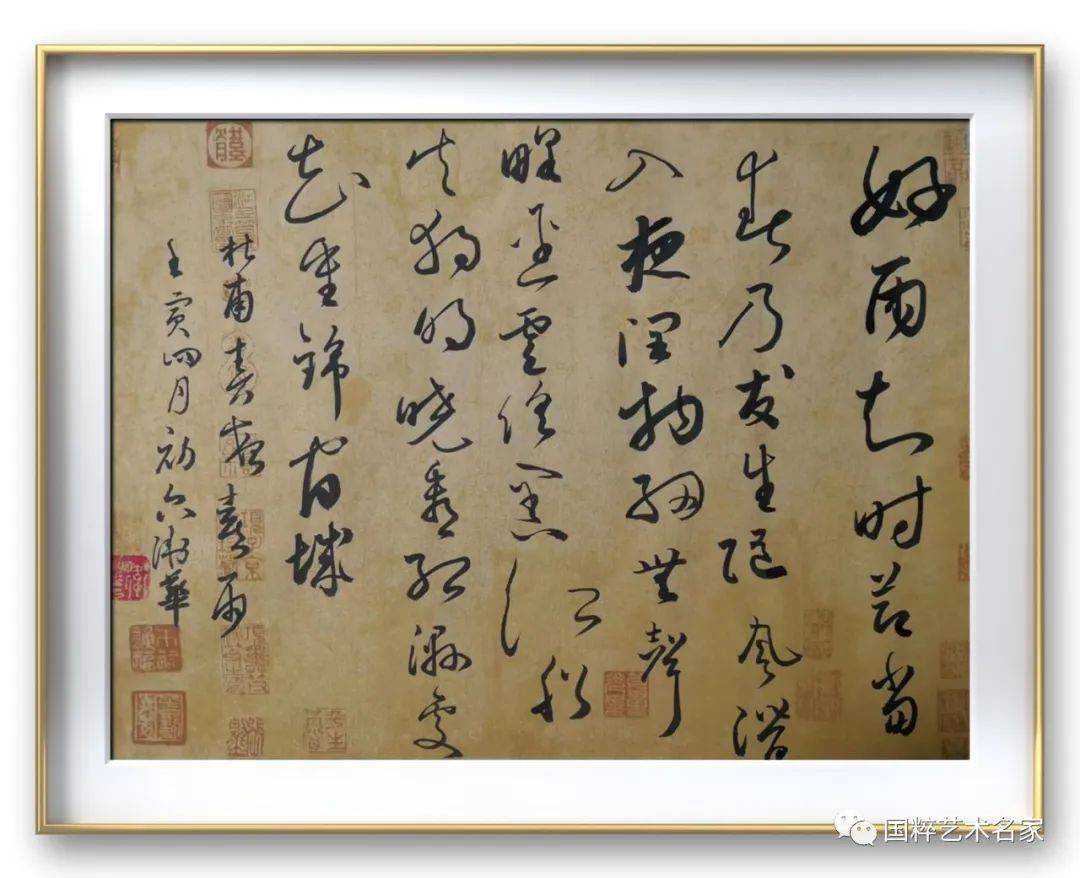 好雨知时节当
春乃发生随风潜
入夜润物细無聲
野径雲俱黑江船
火独明晓看红湿处
花重锦官城
杜甫春夜喜雨
壬寅四月初六淑華
国粹艺术名家